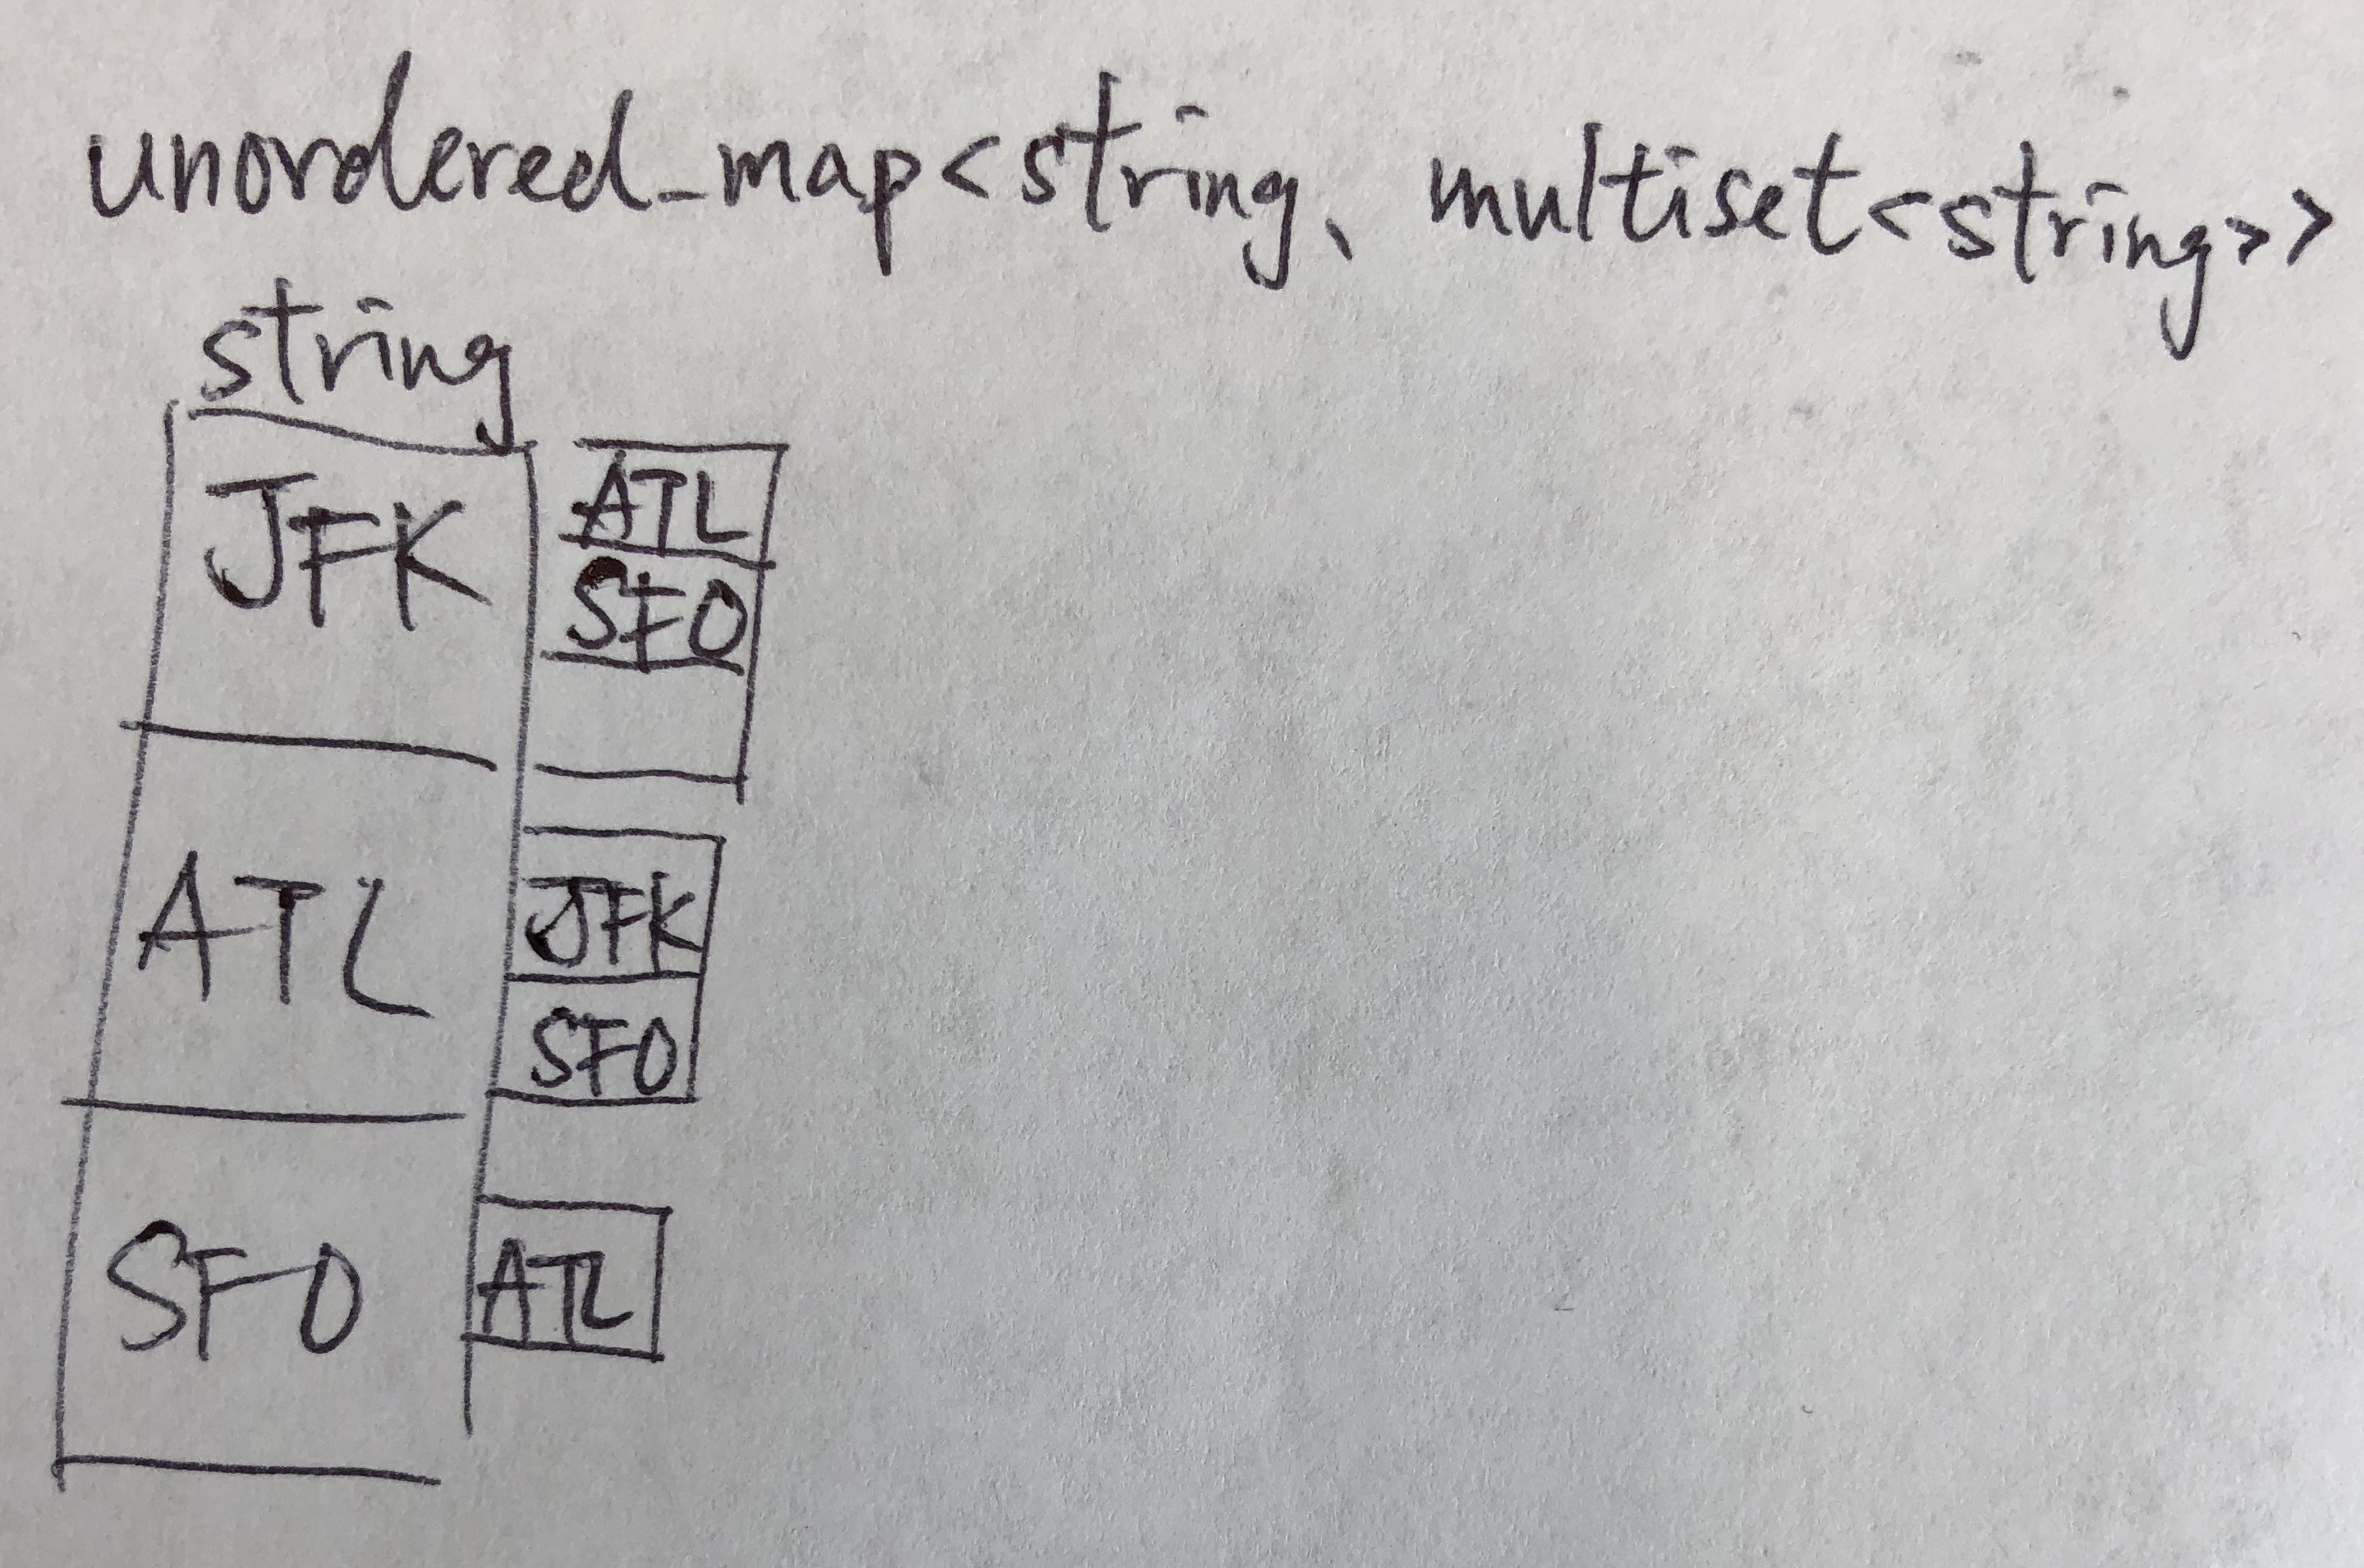 unordered_map<string、 multiset<string>>
string
JFK
ATL
SFO
ATL
JFK
SFO
SFO
ATL